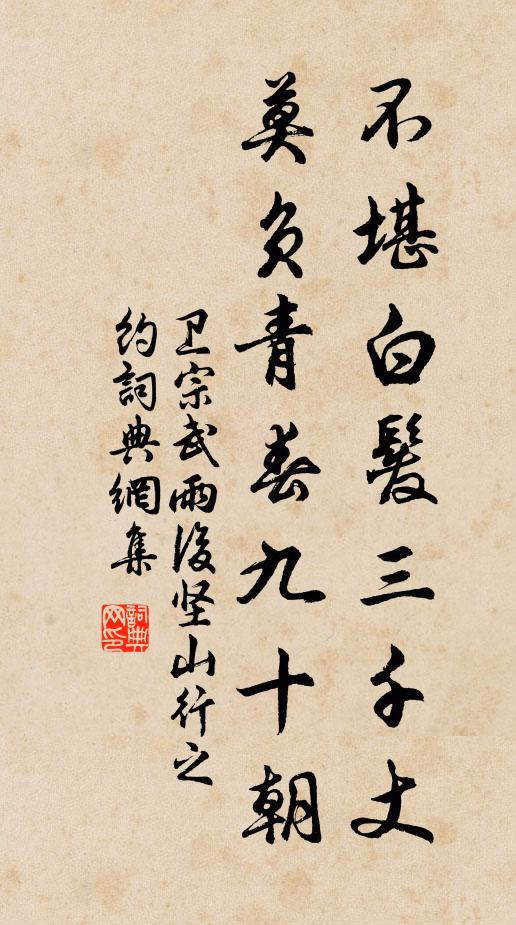 不堪白髮三千丈
莫負青春九十朝
卫宗武雨後坚山行之
約詞典網集
詞典
网印